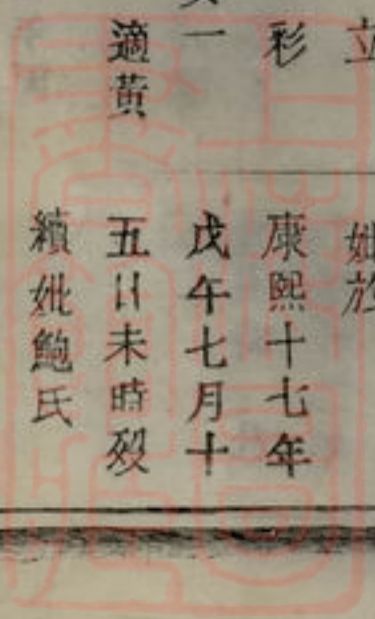 立
彩
一
適黃
妣於
康熙十七年
戊午七月十
五日未時歿
續妣鮑氏